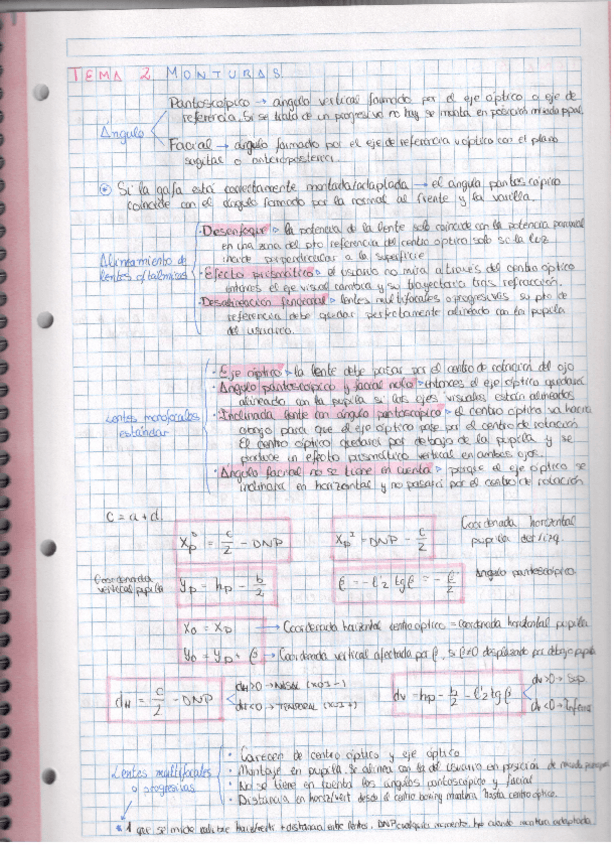 TEMA 2 MONTURAS
Ángulo
Pantoscópico → ángulo vertical formado por el eje óptico o eje de
referencia. Si se trata de un progresivo no hay se monta en posición mirada ppal.
Facial → ángulo formado por el eje de referencia u óptico con el plano
sagital o anteroposterior.
Si la gafa está correctamente montada/adaplada → el ángulo pantoscópico
coincide con el ángulo formado por la normal al frente y la varilla.
Alineamiento de
lentes oftálmicas
· Desenfoque → la potencia de la lente solo coincide con la potencia
en una zona del pto referencia del centro óptico solo si la luz
incide perpendicular a la superficie
· Efecto prismático → el usuario no mira a través del centro óptico
entonces el eje visual cambia y su trayectoria tras refracción.
· Desalineación funcional → lentes multifocales o progresivos su pto de
referencia debe quedar perfectamente alineado con la pupila
del usuario.
Lentes monofocales
estándar
· Eje óptico → la lente debe pasar por el centro de rotación del ojo
· Ángulo pantoscópico y facial nulo → entonces el eje óptico quedará
alineado con la pupila si los ejes visuales están alineados
· Inclinada lente con ángulo pantoscópico → el centro óptico va hacia
abajo para que el eje óptico pase por el centro de rotación
El centro óptico quedará por debajo de la pupila y se
produce un efecto prismático vertical en ambos ojos.
· Ángulo facial no se tiene en cuenta → porque el eje óptico se
inclinaría en horizontal y no pasaría por el centro de rotación
c = a + d.
Xp = c/2 - DNP
Xp = DNP - c/2
Coordenada horizontal
pupila der/izq.
Coordenada
vertical pupila
yp = hp - b/2
β = - l'2 tg β
Ángulo pantoscópico
Xo = Xp → Coordenada horizontal centro óptico = coordenada horizontal pupila
Yo = Yp + β → Coordenada vertical afectada por β, si β≠0 desplazado por debajo pupila
dH = c/2 - DNP
dH>0 → NASAL
dH<0 → TEMPORAL
dv = hp - b/2 - l'2 tg β
dv>0 → Sup
dv<0 → Infer
Lentes multifocales
o progresivas
· Carecen de centro óptico y eje óptico
· Montaje en pupila. Se alinea con la del usuario en posición de mirada principal
· No se tiene en cuenta los ángulos pantoscópico y facial
· Distancia en horiz/vert desde el centro boxing montura hasta centro óptico.